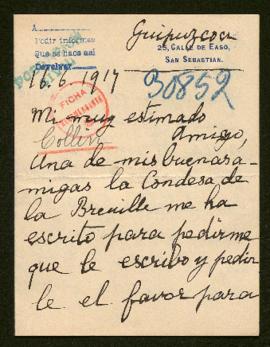 Guipuzcoa
A
Pedir informes
Que se haca así
Devolver
25, CALLE DE EASO,
SAN SEBASTIAN.
16.6.1917
30852
FICHA
Mi muy estimado
Collin
Amigo,
Una de mis buenas a-
migas la Condesa de
la Breuille me ha
escrito para pedirme
que le escribo y pedir
le el favor para